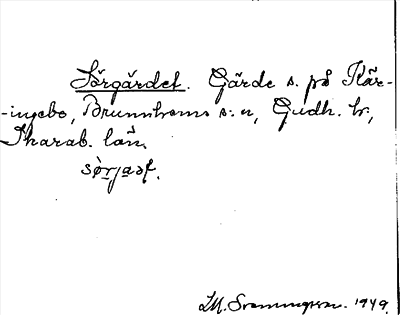 Sörgärdet. Gärde s. på Kär-
-ingebo, Brunnhems s:n, Gudh. hr,
Skarab. län.
sørjaṣt.
I.M. Svenningsson. 1949.